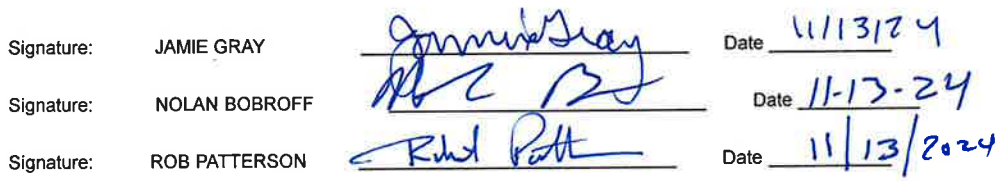 Signature: JAMIE GRAY Jamie Gray Date 11/13/24
Signature: NOLAN BOBROFF Date 11-13-24
Signature: ROB PATTERSON Robert Patt Date 11/13/2024